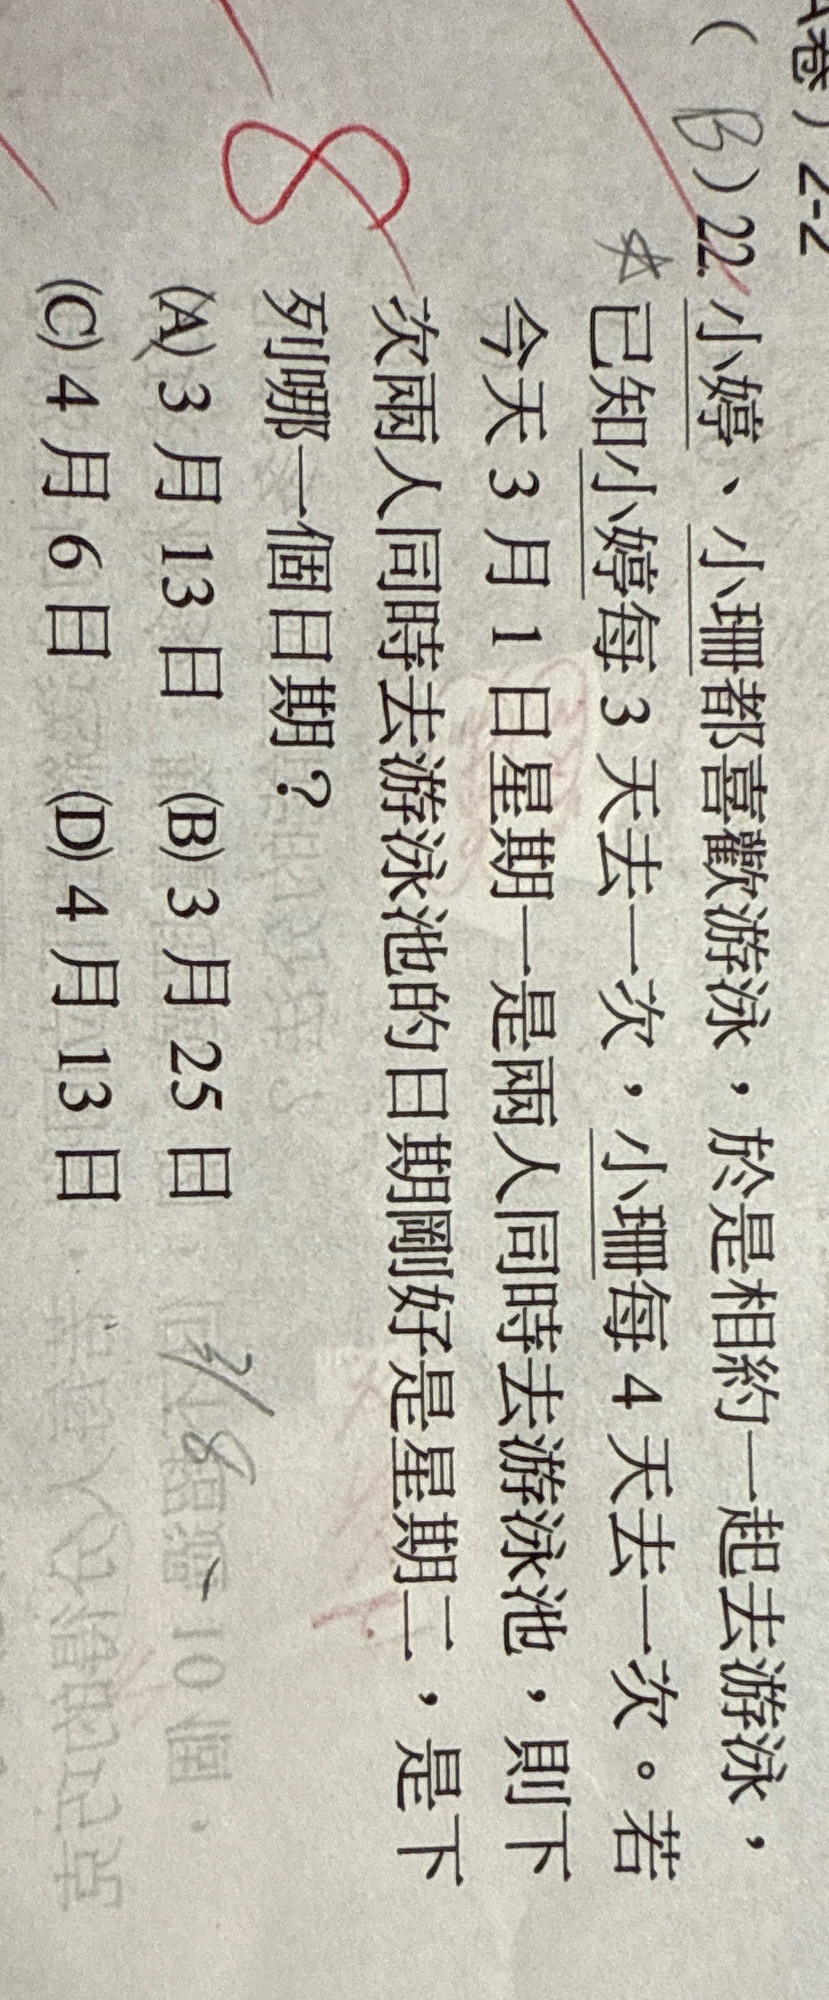 卷）2-2
( B ) 22. 小婷、小珊都喜歡游泳，於是相約一起去游泳，
☆已知小婷每 3 天去一次，小珊每 4 天去一次。若
今天 3 月 1 日星期一是兩人同時去游泳池，則下
次兩人同時去游泳池的日期剛好是星期二，是下
列哪一個日期？
8
(A) 3 月 13 日 (B) 3 月 25 日
(C) 4 月 6 日 (D) 4 月 13 日